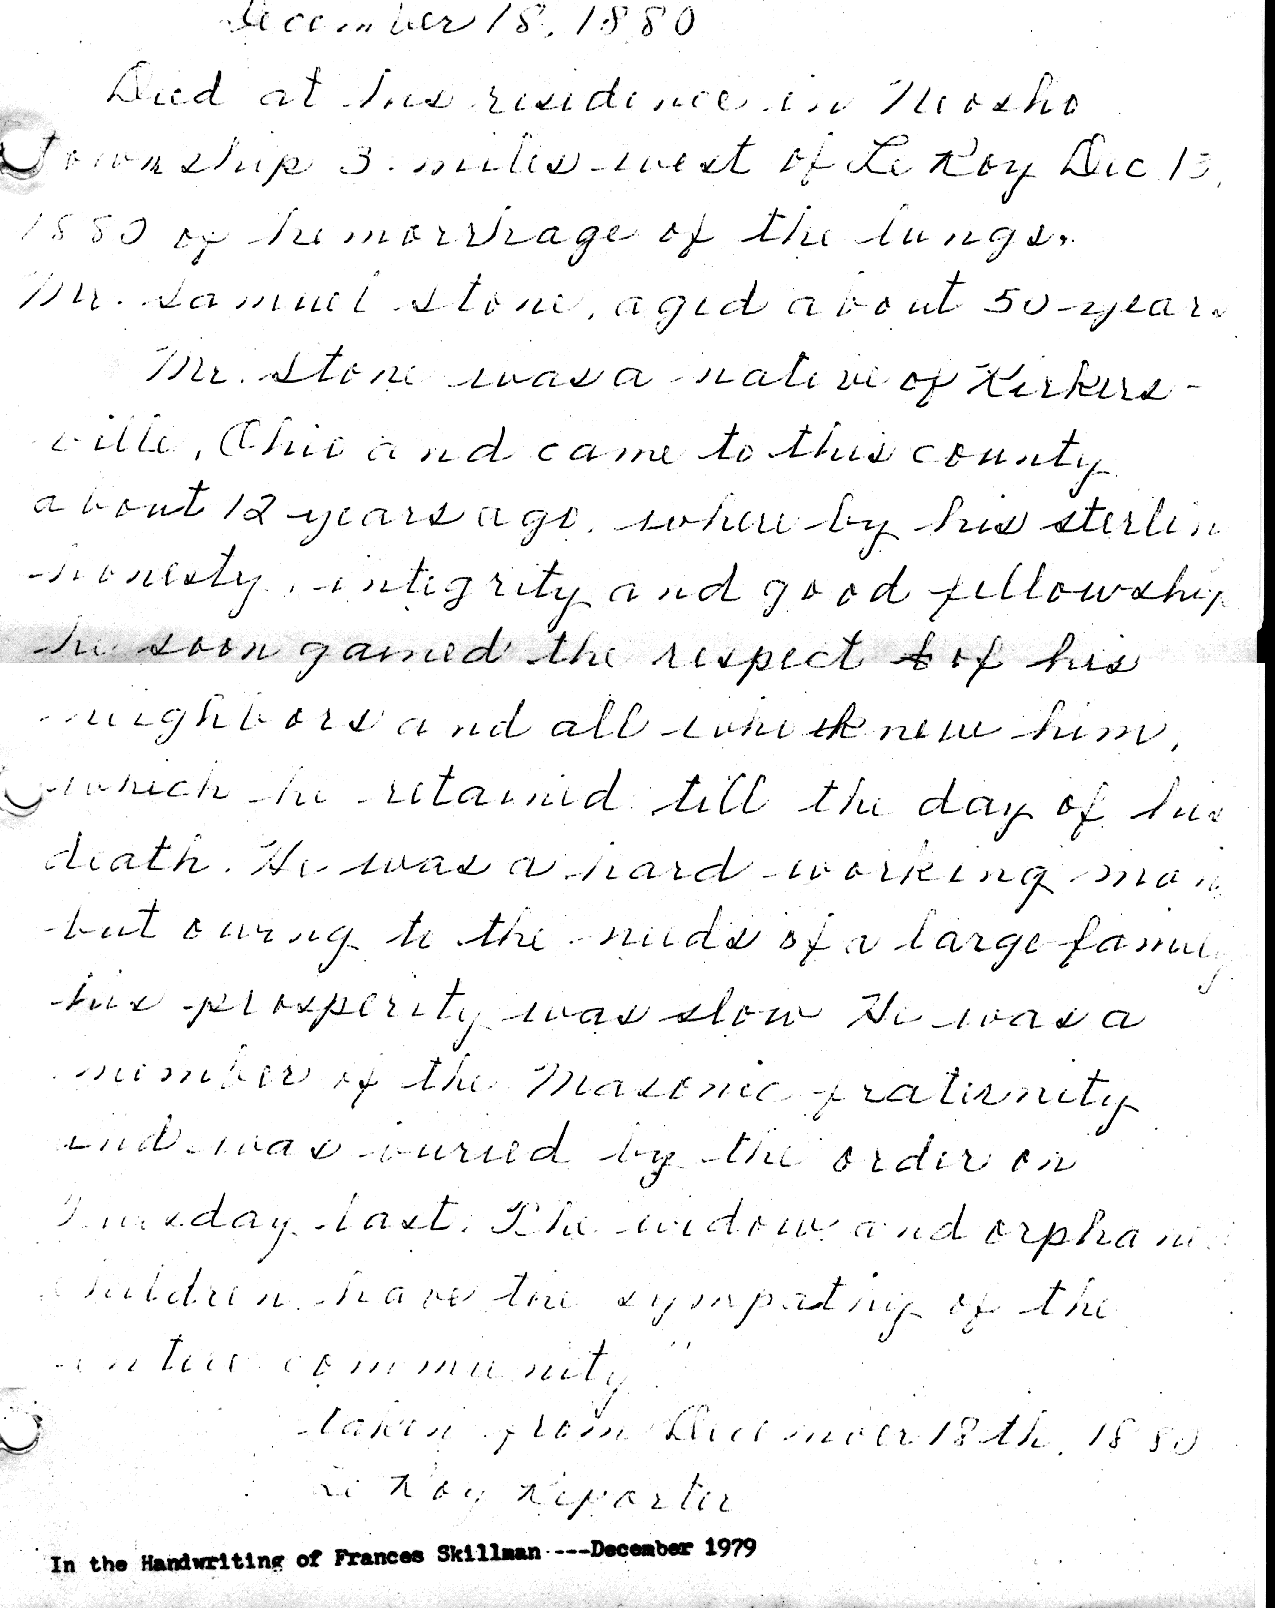 December 18, 1880
Died at his residence in Neosho
Township 3 miles west of Le Roy Dec 13,
1880 of hemorrhage of the lungs.
Mr. Samuel Stone, aged about 50 years
Mr. Stone was a native of Kirkers-
ville, Ohio and came to this county
about 12 years ago, where by his sterlin
honesty, integrity and good fellowship
he soon gained the respect of his
neighbors and all who knew him,
which he retained till the day of his
death. He was a hard working man
but owing to the needs of a large family
his prosperity was slow He was a
member of the Masonic fraternity
and was buried by the order on
Tuesday last. The widow and orphan
children have the sympathy of the
entire community"
taken from December 18th, 1880
Le Roy Reporter
In the Handwriting of Frances Skillman ----December 1979